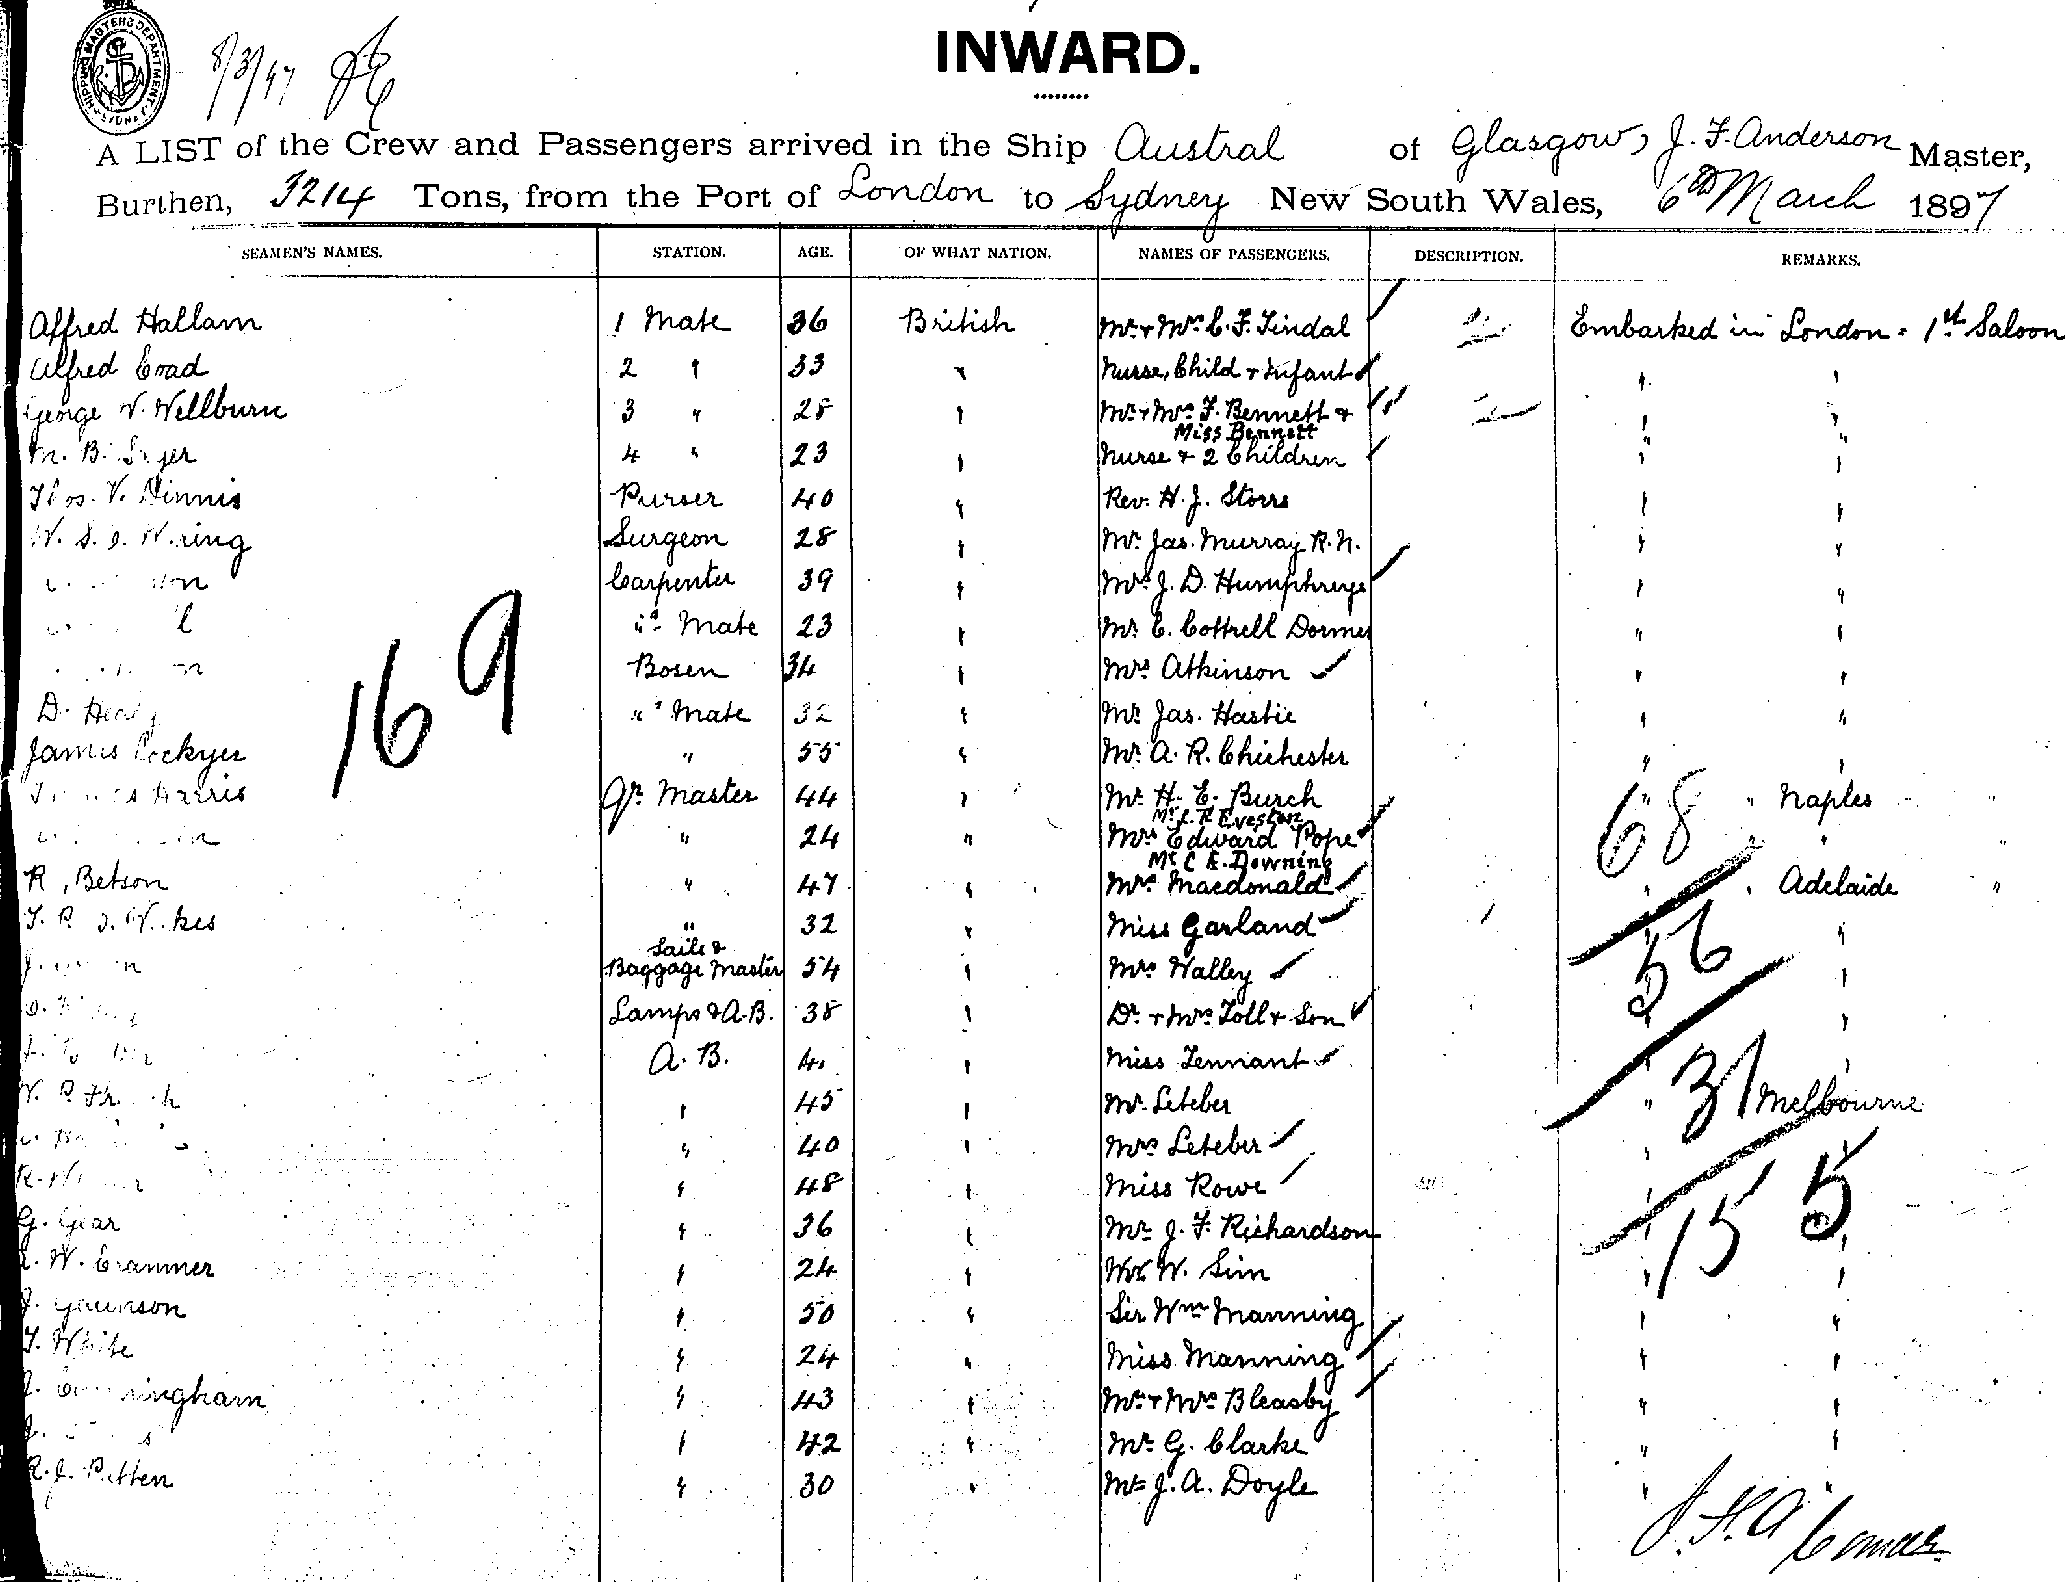 8/3/97
INWARD.
A LIST of the Crew and Passengers arrived in the Ship Austral of Glasgow, J. F. Anderson Master,
Burthen, 3214 Tons, from the Port of London to Sydney New South Wales, 6th March 1897
SEAMEN'S NAMES. STATION. AGE. OF WHAT NATION. NAMES OF PASSENGERS. DESCRIPTION. REMARKS.
Alfred Hallam 1 Mate 36 British Mr & Mrs C. F. Tindal Embarked in London - 1st Saloon
Alfred Coad 2 " 33 " Nurse, Child & Infant " "
George V. Wellburn 3 " 28 " Mr & Mrs F. Bennett & " "
Miss Bennett " "
M. B. Sayer 4 " 23 " Nurse & 2 Children " "
Thos. V. Dinnis Purser 40 " Rev. H. J. Storrs " "
W. S. Surgeon 28 " Mr Jas. Murray R.N. " "
Carpenter 39 " Mrs J. D. Humphreys " "
"s Mate 23 " Mr C. Cottrell Dormer " "
Bosen 34 " Mrs Atkinson " "
D. Healy "s Mate 32 " Mr Jas. Hastie " "
James Lockyer " 55 " Mr A. R. Chichester " "
169
Harris Qr Master 44 " Mr H. E. Burch " " Naples "
68
Mr L. R. Eveston
" 24 " Mrs Edward Pope " " "
Mr C E. Downing
R. Betson " 47 " Mrs Macdonald " " Adelaide "
T. R. " 32 " Miss Garland " "
56
Sails &
Baggage Master 54 " Mrs Walley " "
Lamps & A.B. 38 " Dr & Mrs Toll & Son " "
A. B. 4 " Miss Tennant " "
31
W. " 45 " Mr. Leteber " Melbourne
" 40 " Mrs Leteber "
155
R. " 48 " Miss Rowe "
G. Gear " 36 " Mr J. F. Richardson " "
W. Crammer " 24 " Mr W. Sim " "
J. Gaunson " 50 " Sir Wm Manning " "
T. White " 24 " Miss Manning " "
J. Cunningham " 43 " Mr & Mrs Bleasby " "
J. " 42 " Mr G. Clarke " "
R. J. Patten " 30 " Mr J. A. Doyle " "
J. F. A
Comdr.